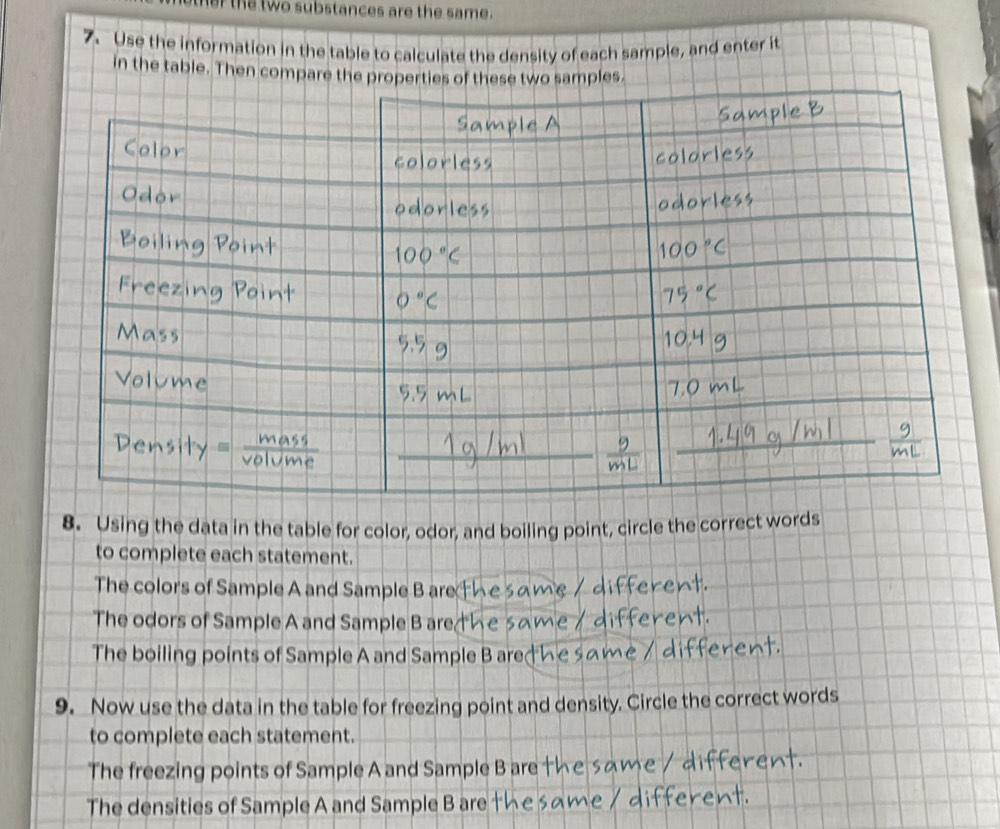 the two substances are the same.
7. Use the information in the table to calculate the density of each sample, and enter it
in the table. Then compare the properties of these two samples.
Sample A Sample B
Color colorless colorless
Odor odorless odorless
Boiling Point 100°C 100°C
Freezing Point 0°C 75°C
Mass 5.5 g 10.4 g
Volume 5.5 mL 7.0 mL
Density = mass/volume 1g/ml g/mL 1.49 g/ml g/mL
8. Using the data in the table for color, odor, and boiling point, circle the correct words
to complete each statement.
The colors of Sample A and Sample B are the same / different.
The odors of Sample A and Sample B are the same / different.
The boiling points of Sample A and Sample B are the same / different.
9. Now use the data in the table for freezing point and density. Circle the correct words
to complete each statement.
The freezing points of Sample A and Sample B are the same / different.
The densities of Sample A and Sample B are the same / different.